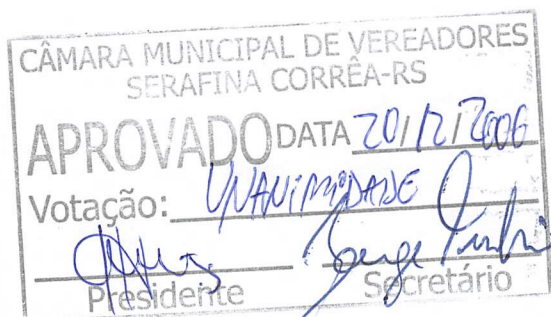 CÂMARA MUNICIPAL DE VEREADORES
SERAFINA CORRÊA-RS
APROVADO DATA 20/12/2006
Votação: UNANIMIDADE
Presidente Secretário